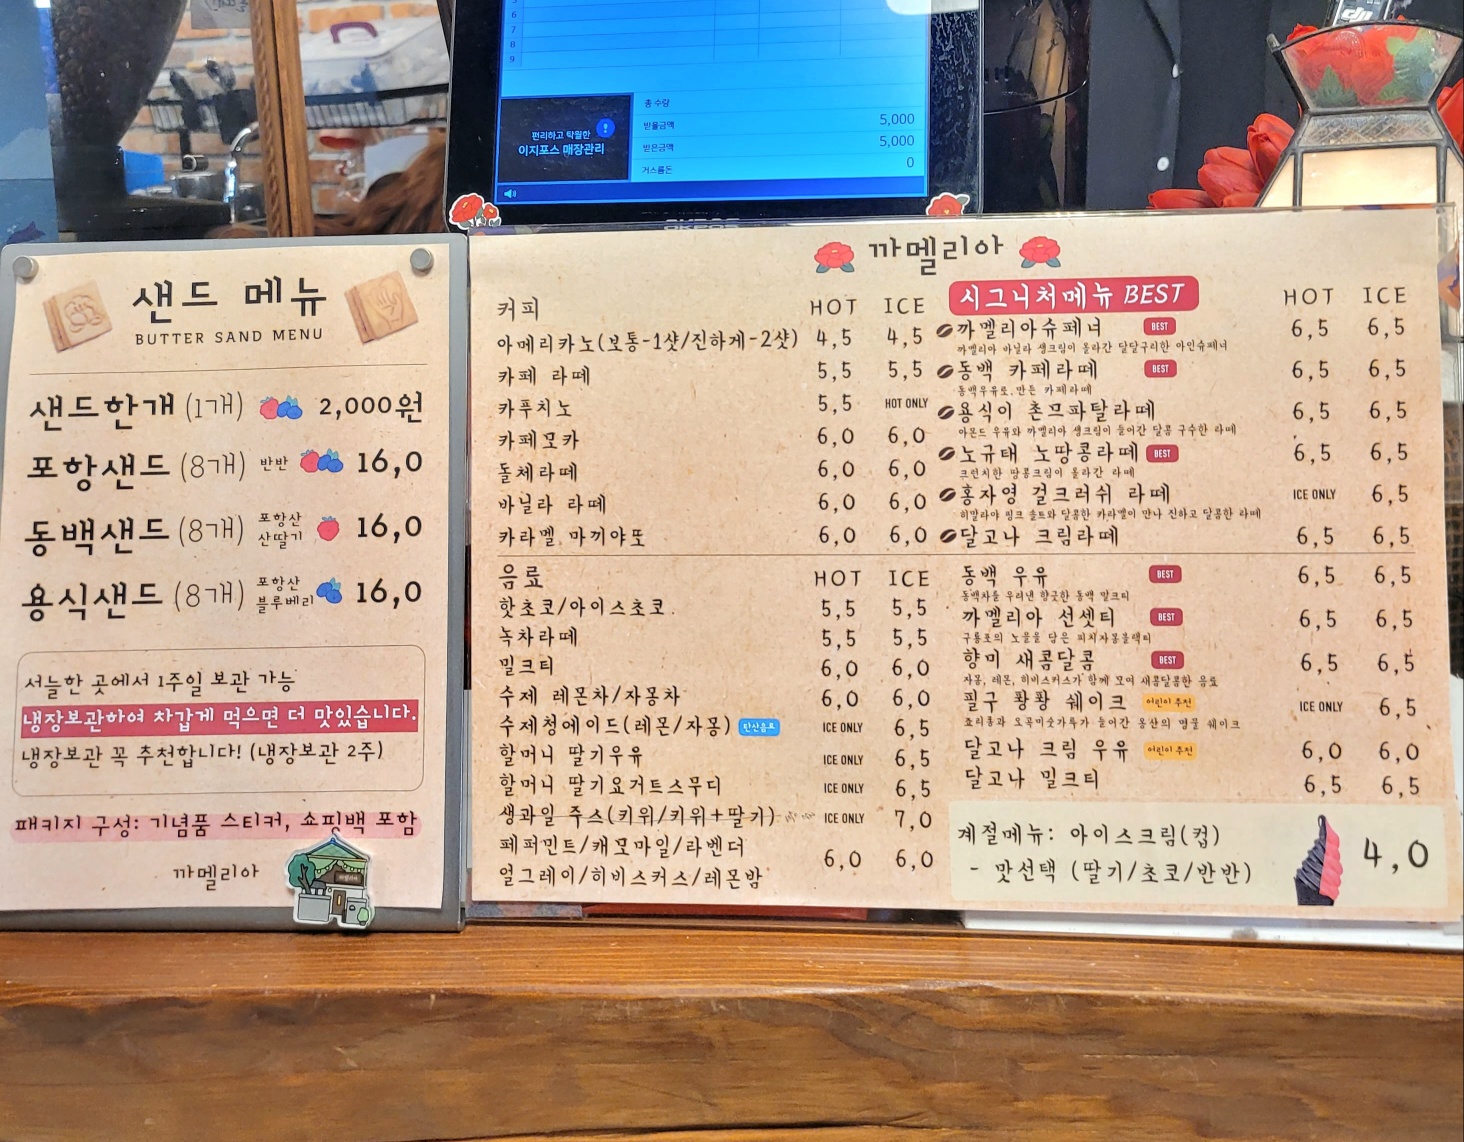 5
6
7
8
9
편리하고 탁월한
이지포스 매장관리
총 수량
받을금액 5,000
받은금액 5,000
거스름돈 0
OKPOS
샌드 메뉴
BUTTER SAND MENU
샌드한개 (1개) 2,000원
포항샌드 (8개) 반반 16,0
동백샌드 (8개) 포항산 산딸기 16,0
용식샌드 (8개) 포항산 블루베리 16,0
서늘한 곳에서 1주일 보관 가능
냉장보관하여 차갑게 먹으면 더 맛있습니다.
냉장보관 꼭 추천합니다! (냉장보관 2주)
패키지 구성: 기념품 스티커, 쇼핑백 포함
까멜리아
까멜리아
커피 HOT ICE
아메리카노(보통-1샷/진하게-2샷) 4,5 4,5
카페 라떼 5,5 5,5
카푸치노 5,5 HOT ONLY
카페모카 6,0 6,0
돌체라떼 6,0 6,0
바닐라 라떼 6,0 6,0
카라멜 마끼야또 6,0 6,0
음료 HOT ICE
핫초코/아이스초코 5,5 5,5
녹차라떼 5,5 5,5
밀크티 6,0 6,0
수제 레몬차/자몽차 6,0 6,0
수제청에이드(레몬/자몽) 탄산음료 ICE ONLY 6,5
할머니 딸기우유 ICE ONLY 6,5
할머니 딸기요거트스무디 ICE ONLY 6,5
생과일 주스(키위/키위+딸기) ICE ONLY 7,0
페퍼민트/캐모마일/라벤더
얼그레이/히비스커스/레몬밤 6,0 6,0
시그니처메뉴 BEST HOT ICE
까멜리아슈페너 BEST 6,5 6,5
까멜리아 바닐라 생크림이 올라간 달달구리한 아인슈페너
동백 카페라떼 BEST 6,5 6,5
동백우유로 만든 카페라떼
용식이 촌므파탈라떼 6,5 6,5
아몬드 우유와 까멜리아 생크림이 들어간 달콤 구수한 라떼
노규태 노땅콩라떼 BEST 6,5 6,5
크런치한 땅콩크림이 올라간 라떼
홍자영 걸크러쉬 라떼 ICE ONLY 6,5
히말라야 핑크 솔트와 달콤한 카라멜이 만나 진하고 달콤한 라떼
달고나 크림라떼 6,5 6,5
동백 우유 BEST 6,5 6,5
동백차를 우려낸 향긋한 동백 밀크티
까멜리아 선셋티 BEST 6,5 6,5
구룡포의 노을을 담은 피치자몽블랙티
향미 새콤달콤 BEST 6,5 6,5
자몽, 레몬, 히비스커스가 함께 모여 새콤달콤한 음료
필구 황황 쉐이크 어린이 추천 ICE ONLY 6,5
쵸리퐁과 오곡미숫가루가 들어간 옹산의 명물 쉐이크
달고나 크림 우유 어린이 추천 6,0 6,0
달고나 밀크티 6,5 6,5
계절메뉴: 아이스크림(컵)
- 맛선택 (딸기/초코/반반) 4,0